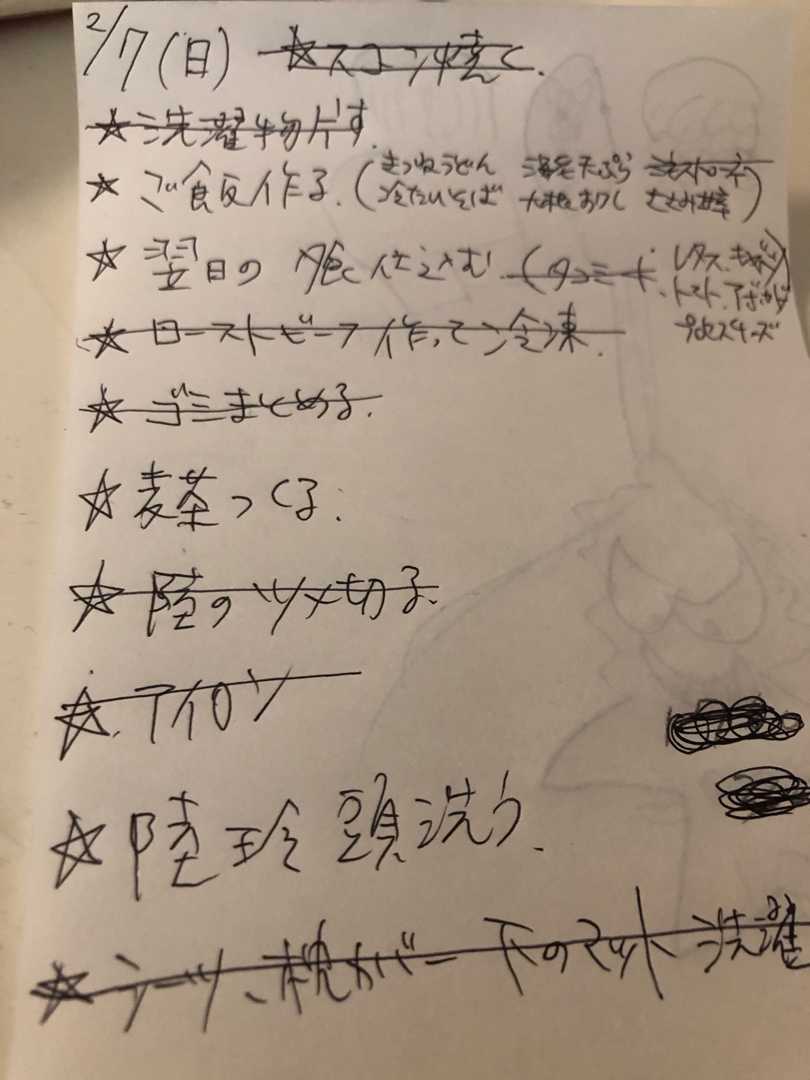 2/7(日) ☆スコン焼く.
☆ 洗濯物片す.
☆ ご飯作る.(きつねうどん 海老天ぷら ミネストローネ
冷たいそば 大根おろし ささみ)
☆ 翌日の夕食仕込む.(タコミート.レタス.
トマト.アボカド
チーズ)
☆ ローストビーフ作って冷凍.
☆ ゴミまとめる.
☆ 麦茶つくる.
☆ 陸のツメ切る.
☆.アイロン
☆ 陸 珍 頭洗う.
☆ シーツ、枕カバー 下のマット 洗濯